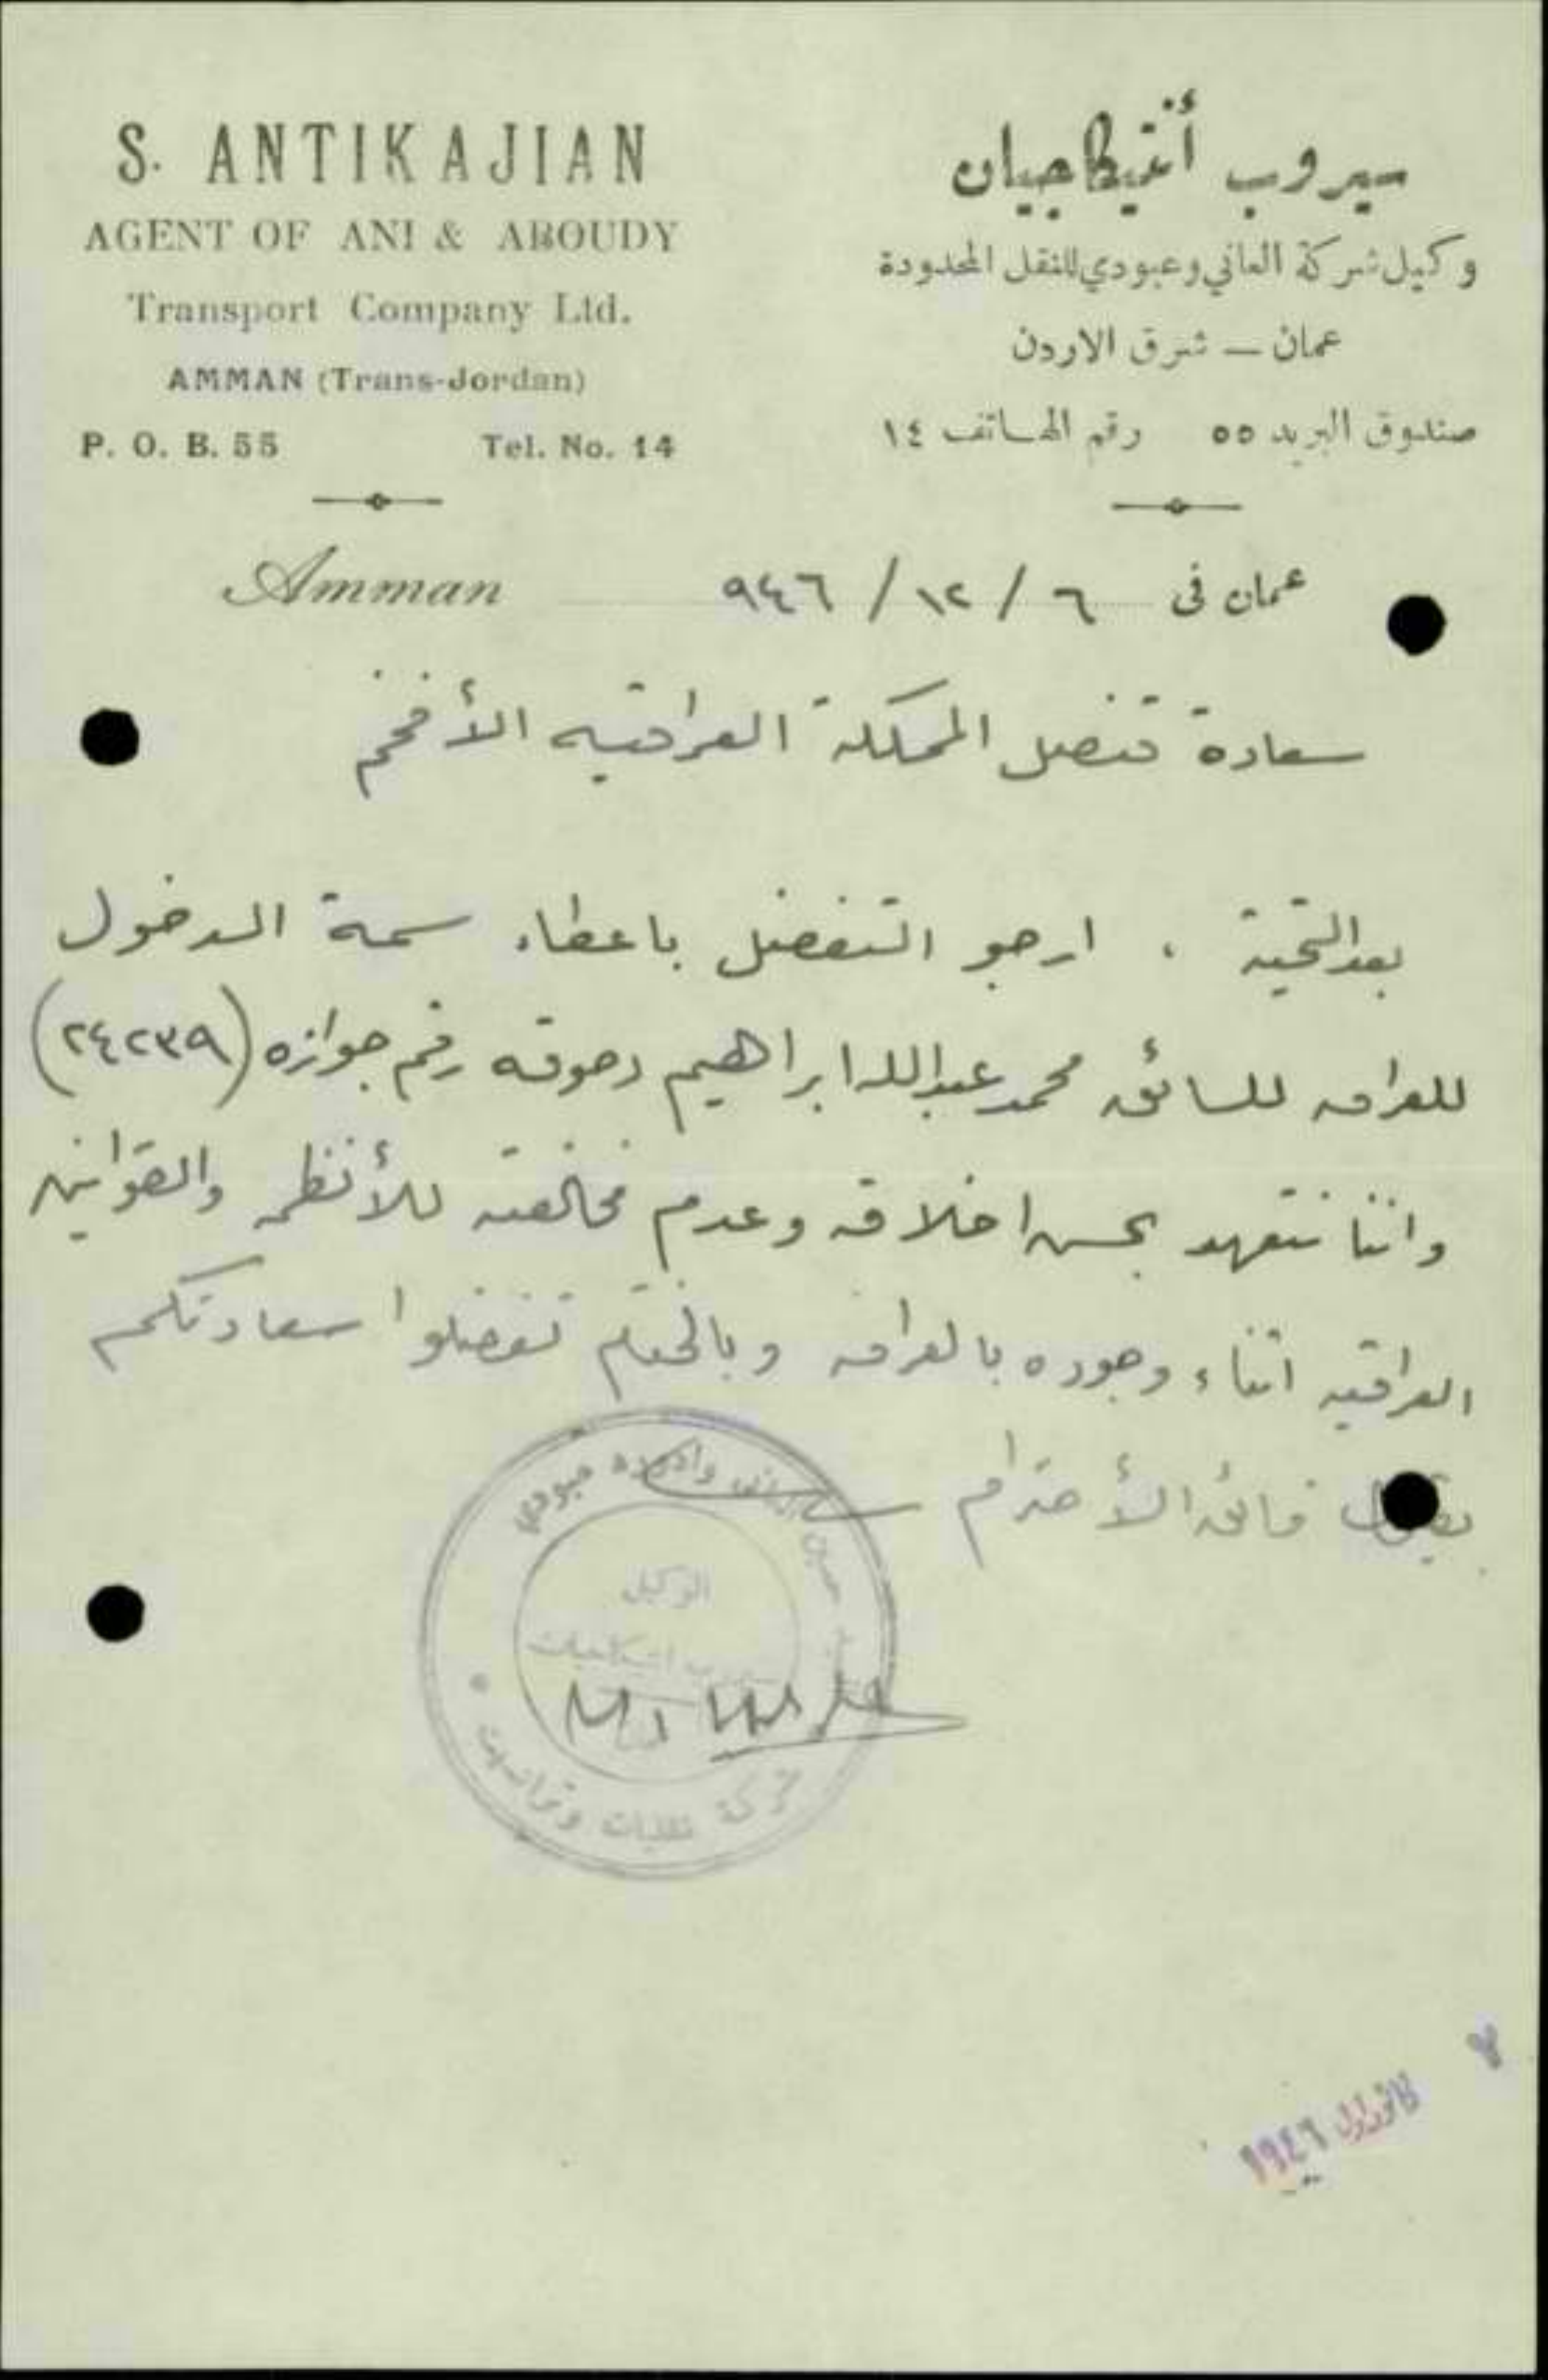 S. ANTIKAJIAN
AGENT OF ANI & ABOUDY
Transport Company Ltd.
AMMAN (Trans-Jordan)
P. O. B. 55 Tel. No. 14
سيروب أنتيكاجيان
وكيل شركة العاني وعبودي للنقل المحدودة
عمان — شرق الاردن
صندوق البريد ٥٥ رقم الهاتف ١٤
Amman
عمان في ٦ / ١٢ / ٩٤٦
سعادة قنصل المملكة العراقيه الأفخم
بعد التحية . ارجو التفضل باعطاء سمة الدخول
للعراق للسائق محمد عبدالله ابراهيم دعوقه رقم جوازه (٢٤٢٣٩)
واننا نتعهد بحسن اخلاقه وعدم مخالفته للأنظمه والقوانين
العراقيه اثناء وجوده بالعراق وبالختام تفضلوا سعادتكم
بقبول فائق الأحترام
عبودي
الوكيل
انتيكاجيان
شركة نقليات
٧
كانون اول ١٩٤٦